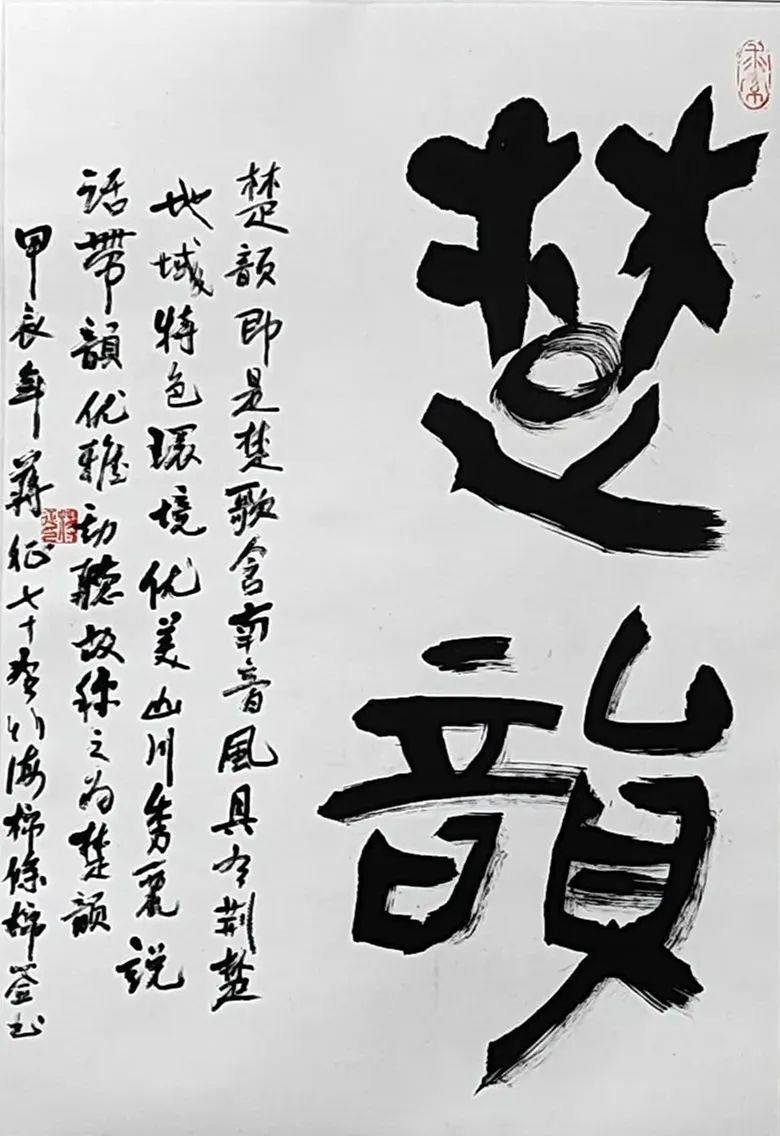 楚韻
楚韻即是楚歌含南音風具有荆楚
地域特色環境优美山川秀麗説
話帶韻优雅动聽故称之为楚韻
甲辰年蔣征七十